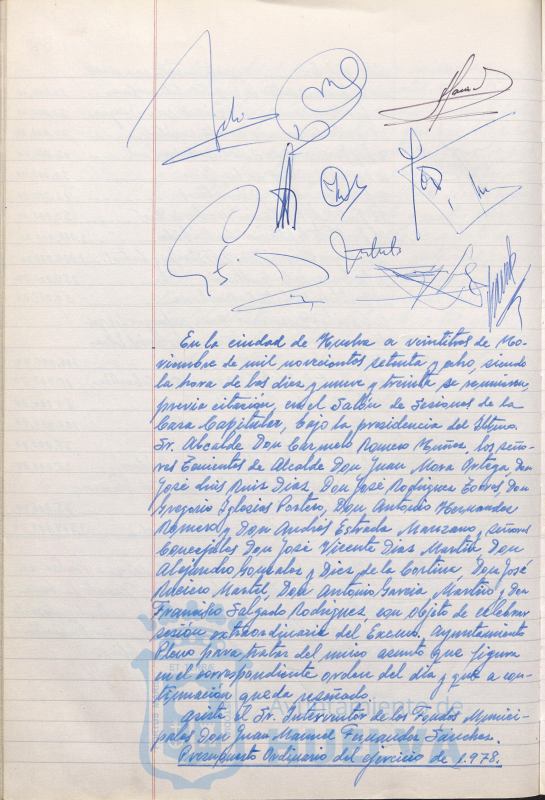 En la ciudad de Huelva a veintitres de No-
viembre de mil novecientos setenta y ocho, siendo
la hora de las diez y nueve y treinta se reunieron,
previa citación, en el Salón de Sesiones de la
Casa Capitular, bajo la presidencia del Iltmo.
Sr. Alcalde Don Carmelo Romero Núñez, los seño-
res Tenientes de Alcalde Don Juan Mora Ortega, Don
José Luis Ruiz Díaz, Don José Rodríguez Torres, Don
Gregorio Iglesias Pastero, Don Antonio Hernández
Romero y Don Andrés Estrada Manzano y señores
Concejales Don José Vicente Díaz Martín, Don
Alejandro González y Díez de la Cortina, Don José
Martil, Don Antonio García Martín y Don
Francisco Salgado Rodríguez con objeto de celebrar
sesión extraordinaria del Excmo. Ayuntamiento
Pleno para tratar del único asunto que figura
en el correspondiente orden del día y que a con-
tinuación queda reseñado.
Asiste el Sr. Interventor de los Fondos Munici-
pales Don Juan Manuel Fernández Sánchez.
Presupuesto Ordinario del ejercicio de 1.978.
Ayuntamiento de
HUELVA